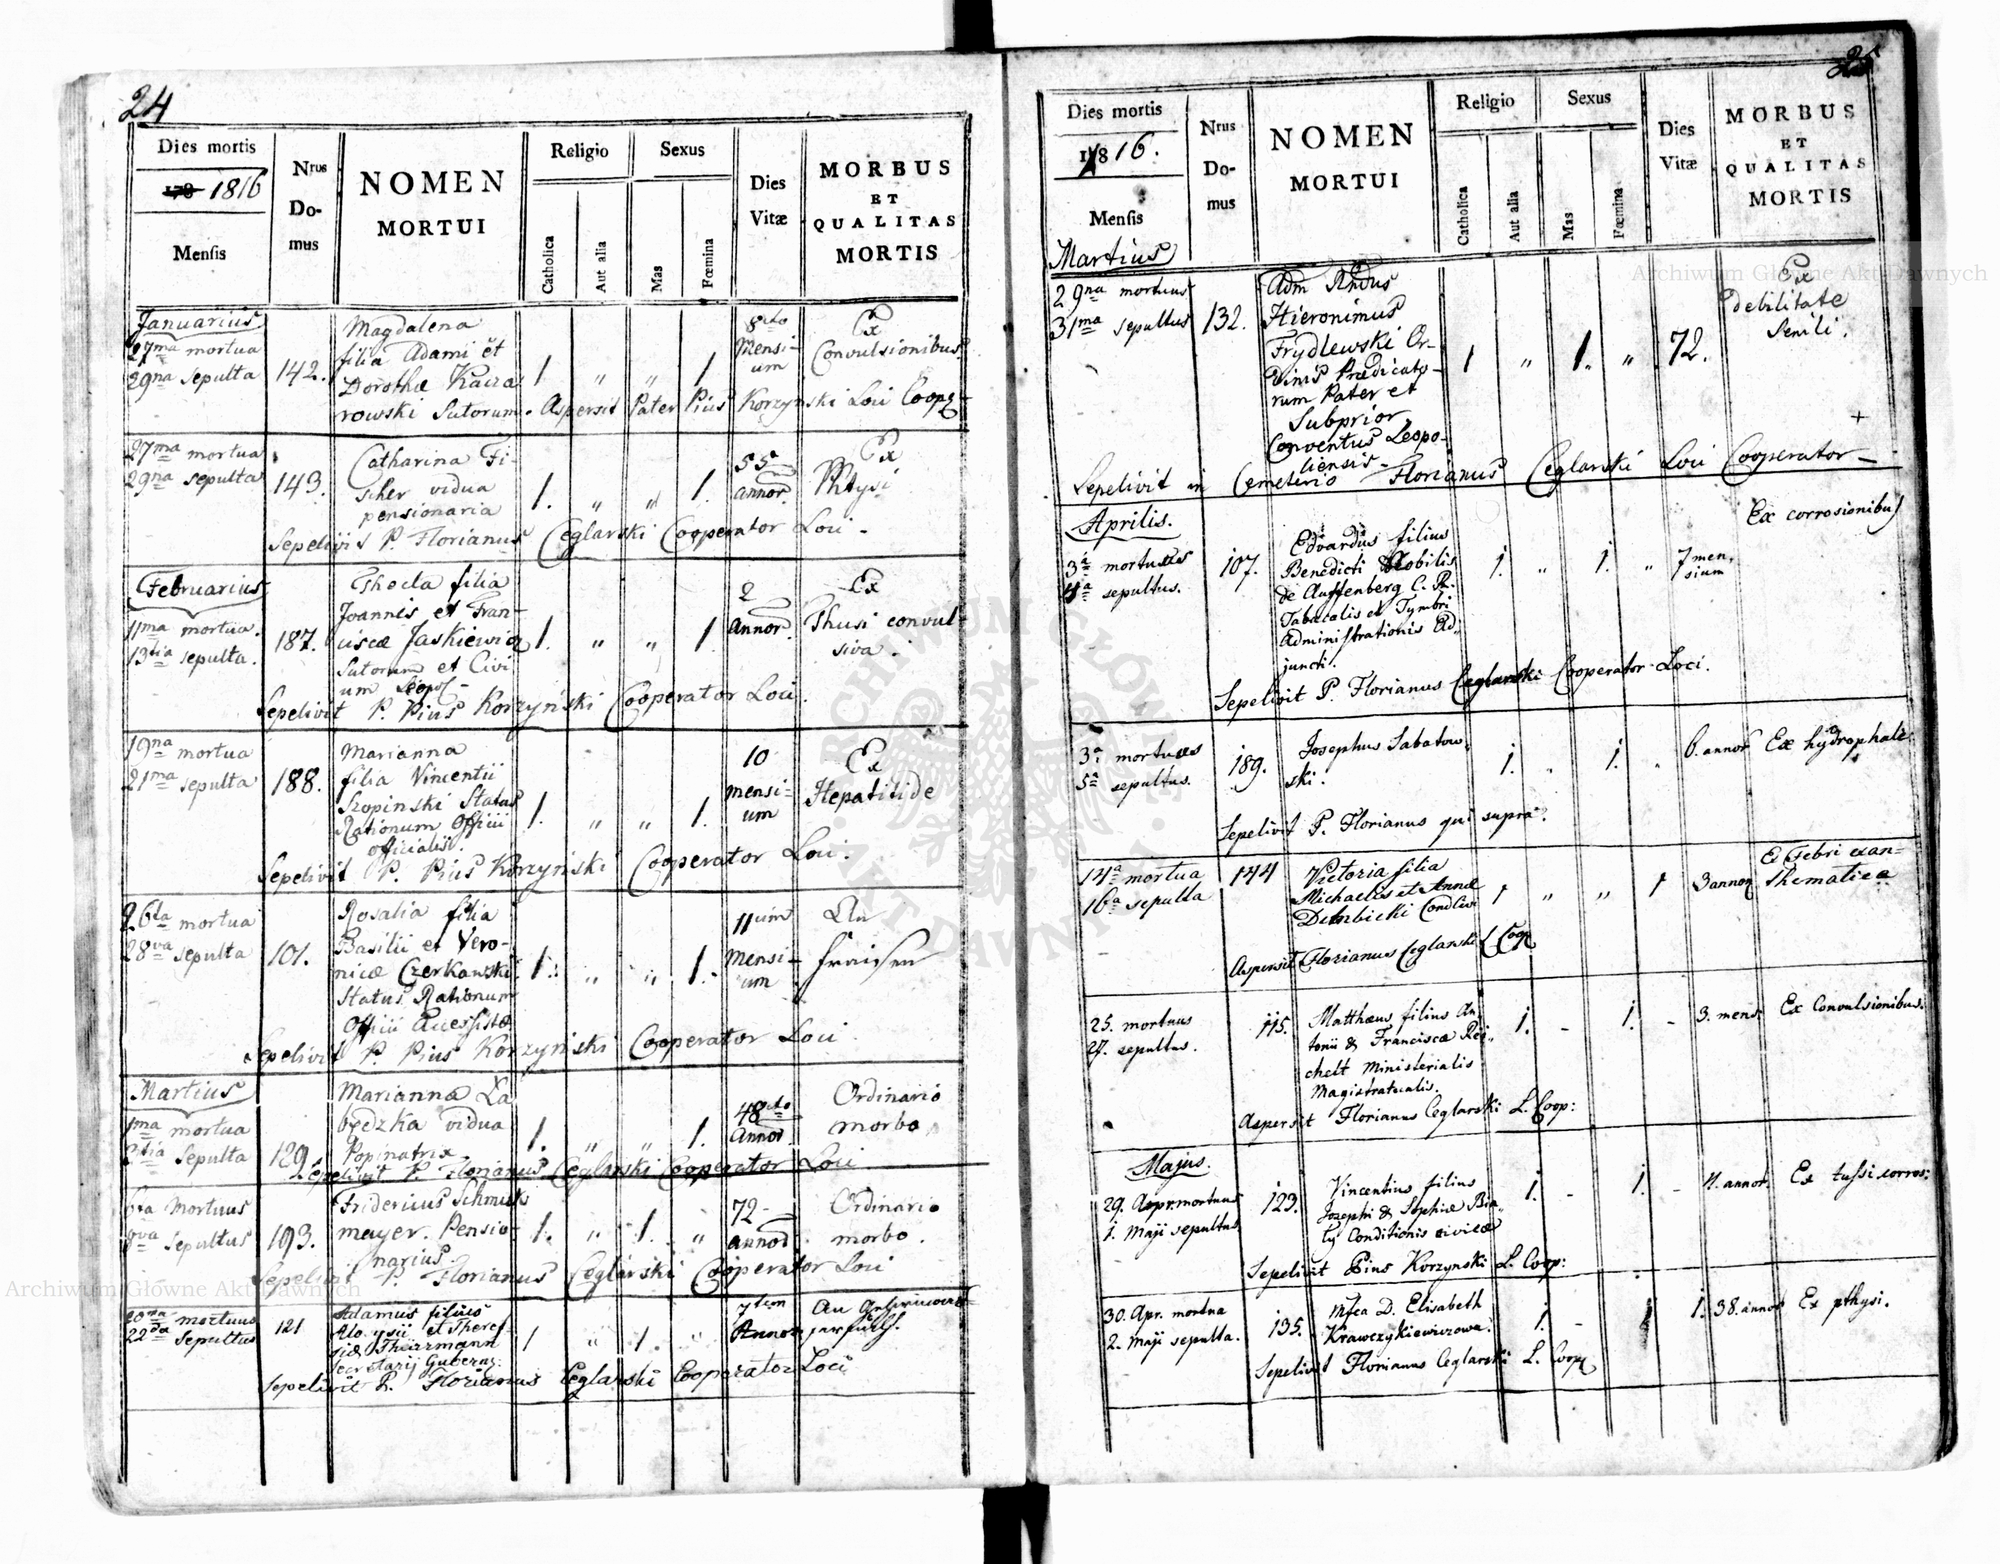 24
Dies mortis
178 1816
Mensis
Nrus
Do-
mus
NOMEN
MORTUI
Religio
Catholica
Aut alia
Sexus
Mas
Fœmina
Dies
Vitæ
MORBUS
ET
QUALITAS
MORTIS
Januarius
27ma mortua
29na sepulta
142.
Magdalena
filia Adami et
Dorothæ Kacza
rowski Sutorum. Aspersit Pater Pius Korzynski Loci Coope-
1 „ „ 1
8cto
Mensi-
um
Ex
Convulsionibus
27ma mortua
29na sepulta
143.
Catharina Fi-
scher vidua
pensionaria
1. „ „ 1.
55
annor.
Ex
Phtysi
Sepelivit P. Florianus Ceglarski Cooperator Loci.
Februarius
11ma mortua.
13tia sepulta.
187.
Thecla filia
Joannis et Fran-
ciscæ Jaskiewicz
Sutorum et Civi
um Leopol-
1. „ „ 1.
2
annor.
Ex
Thusi convul-
siva.
Sepelivit P. Pius Korzyński Cooperator Loci.
19na mortua
21ma sepulta
188.
Marianna
filia Vincentii
Szopinski Status
Rationum Officii
officialis.
1. „ „ 1.
10
mensi-
um
Ex
Hepatitide
Sepelivit P. Pius Korzyński Cooperator Loci.
26ta mortua
28va sepulta
101.
Rosalia filia
Basilii et Vero-
nicæ Czerkawski
Status Rationum
Officii Accessistæ
1. „ „ 1.
11cim
Mensi-
um
An
Fraisen
Sepelivit P. Pius Korzyński Cooperator Loci
Martius
1ma mortua
3tia Sepulta
129.
Marianna La
będzka vidua
Popinatrix
1. „ „ 1.
48cto
Annor.
Ordinario
morbo
Sepelivit P. Florianus Ceglarski Cooperator Loci
6ta Mortuus
8va Sepultus
193.
Fridericus Schmuk
mayer. Pensio-
narius
1. „ 1. „
72
annor.
Ordinario
morbo.
Sepelivit P. Florianus Ceglarski Cooperator Loci
20ma mortuus
22da Sepultus
121
Adamus filius
Aloysii et There-
siæ Thürmann
Secretarij Gubern:
1 „ 1. „
7tem
Annor.
An
Sepelivit P. Florianus Ceglarski Cooperator Loci
25
Dies mortis
1816.
Mensis
Nrus
Do-
mus
NOMEN
MORTUI
Religio
Catholica
Aut alia
Sexus
Mas
Fœmina
Dies
Vitæ
MORBUS
ET
QUALITAS
MORTIS
Martius
29na mortuus
31ma sepultus
132.
Adm Rndus
Hieronimus
Frydlewski Or-
dinis Prædicato-
rum Pater et
Subprior
Conventus Leopo-
liensis-
1 „ 1. „
72.
Ex
debilitate
Senili.
+
Sepelivit in Cemeterio Florianus Ceglarski Loci Cooperator
Aprilis.
3a mortuus
4a sepultus.
107.
Edvardus filius
Benedicti Nobilis
de Auffenberg C. R.
Tabacalis et Tymbri
Administrationis Ad-
juncti.
1. „ 1. „
7 men
sium
Ex corrosionibus
Sepelivit P. Florianus Ceglarski Cooperator Loci.
3a mortuus
5a sepultus.
189.
Josephus Sabatow-
ski.
1. „ 1. „
6. annor
Ex hydrophale.
Sepelivit P. Florianus qui supra.
14a mortua
16a sepulta
144
Victoria filia
Michaelis et Annæ
Dembicki Cond Civi
1 „ „ 1
3 annor
Ex Febri exan-
thematica
Aspersit Florianus Ceglarski L. Coop
25. mortuus
27. sepultus.
115.
Matthæus filius An-
tonii & Franciscæ Rei-
chelt Ministerialis
Magistratualis.
1. - 1. -
3. mens.
Ex Convulsionibus.
Aspersit Florianus Ceglarski L. Coop:
Majus.
29. Apr. mortuus
1. Maji sepultus
123.
Vincentius filius
Josephi & Sophiæ Bia-
ly Conditionis civicæ
1. - 1. -
4. annor.
Ex tussi corros:
Sepelivit Pius Korzynski L. Coop:
30. Apr. mortua
2. Maji sepulta.
135.
Mfca D. Elisabeth
Krawczykiewiczowa.
1. - 1.
38. annor
Ex pthysi.
Sepelivit Florianus Ceglarski L. Coop
Archiwum Główne Akt Dawnych
Archiwum Główne Akt Dawnych
ARCHIWUM GŁÓWNE · AKT DAWNYCH ·